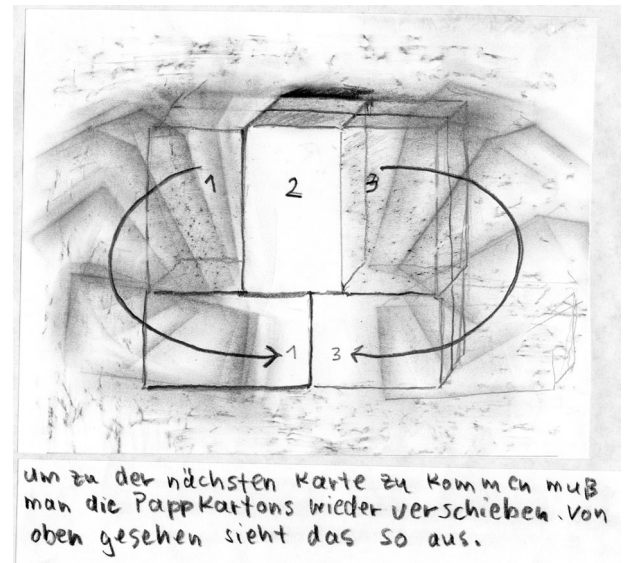 1 2 3
1 3
um zu der nächsten Karte zu kommen muß
man die Pappkartons wieder verschieben. Von
oben gesehen sieht das so aus.